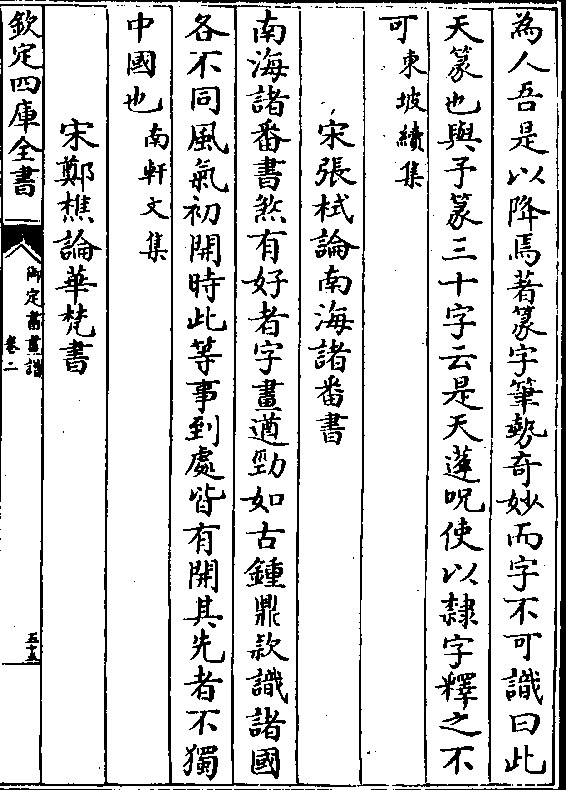 為人吾是以降焉著篆字筆勢奇妙而字不可識曰此
天篆也與予篆三十字云是天蓬呪使以隸字釋之不
可東坡續集
宋張栻論南海諸番書
南海諸番書煞有好者字畫遒勁如古鍾鼎款識諸國
各不同風氣初開時此等事到處皆有開其先者不獨
中國也南軒文集
宋鄭樵論華梵書
欽定四庫全書
御定書畫譜
卷二
五十五